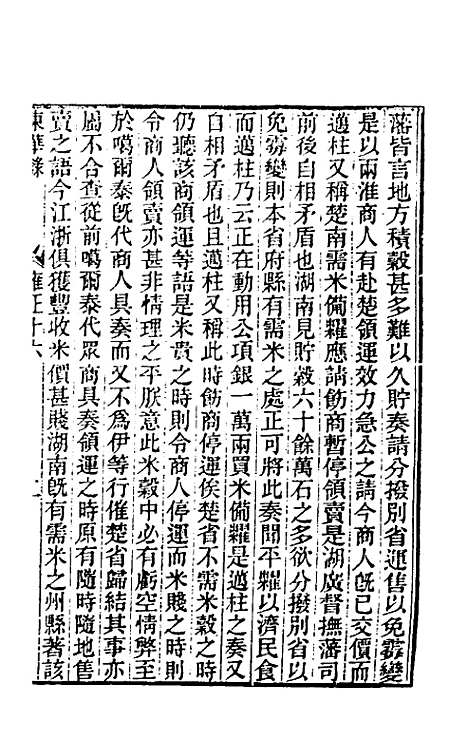 藩皆言地方積穀甚多難以久貯奏請分撥別省運售以免霉變
是以兩淮商人有赴楚領運效力急公之請今商人旣已交價而
邁柱又稱楚南需米備糶應請飭商暫停領賣是湖廣督撫藩司
前後自相矛盾也湖南見貯穀六十餘萬石之多欲分撥別省以
免霉變則本省府縣有需米之處正可將此奏聞平糶以濟民食
而邁柱乃云正在動用公項銀一萬兩買米備糶是邁柱之奏又
自相矛盾也且邁柱又稱此時飭商停運俟楚省不需米穀之時
仍聽該商領運等語是米貴之時則令商人停運而米賤之時則
令商人領賣亦甚非情理之平朕意此米穀中必有虧空情弊至
於噶爾泰旣代商人具奏而又不爲伊等行催楚省歸結其事亦
屬不合查從前噶爾泰代眾商具奏領運之時原有隨時隨地售
賣之語今江浙俱獲豐收米價甚賤湖南旣有需米之州縣著該
東華錄 雍正十六